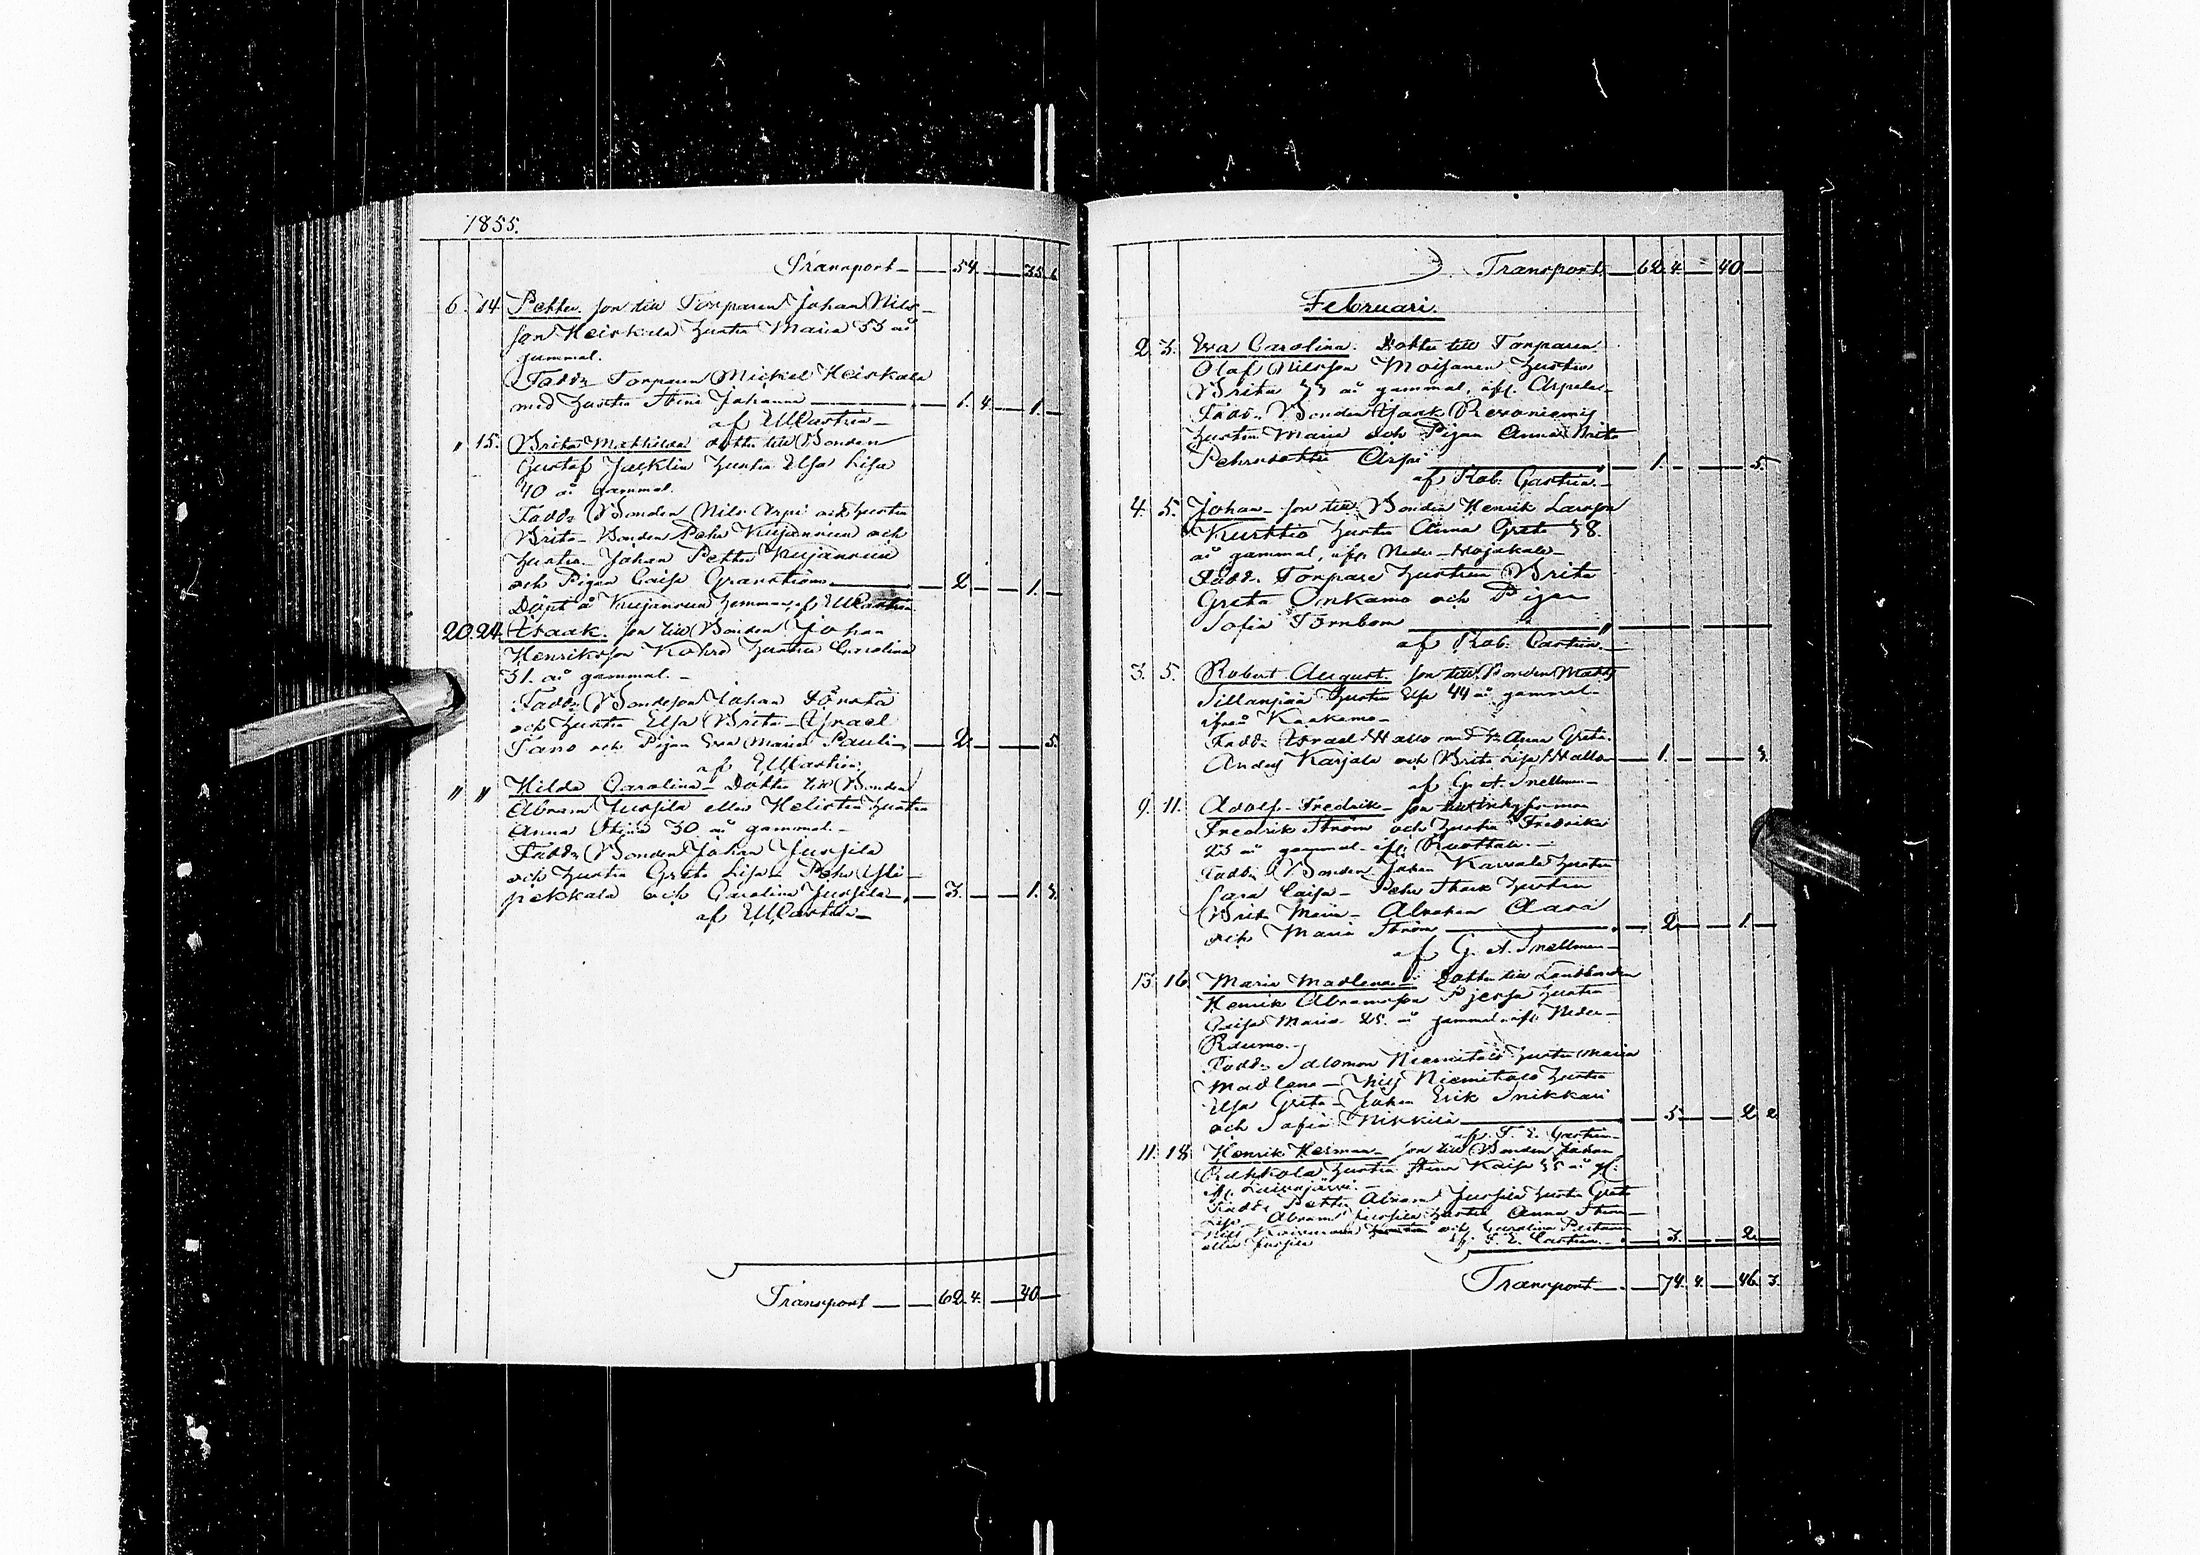 1855.
Transport 54. 35. 6
6. 14. Petter. son till Torparen Johan Nils-
son Heiskala hustru Maria 33 år
gammal.
Fadd: Torparen Mickel Heiskala
med hustru Stina Johanna 1. 4. 1.
af EMCastrén
" 15. Brita Mathilda dotter till Bonden
Gustaf hustru Elsa Lisa
40 år gammal.
Fadd: Bonden Nils Arpi och hustru
Brita - Bonden Pehr Kujansuu och
hustru - Johan Petter Kujansuu
och Pigan Caisa Granström 2. 1.
Döpt å Kujansuu hemman, af EMCastrén
20. 24. Isaak. son till Bonden Johan
Henriksson hustru Carolina
31. år gammal.
Fadd: Bondeson Johan
och hustru Elsa Brita - Israel
och Pigan Eva Maria Pauli 2. 5.
af EMCastrén
" " Hilda Carolina - Dotter till Bonden
Abram Jussila eller hustru
Anna Stina 30 år gammal.
Fadd: Bonden Johan Jussila
och hustru Greta Lisa - Pehr Yli-
pekkala och Carolina Jussila 3. 1. 3.
af EMCastrén
Transport 62. 4. 40
Transport 62. 4. 40
Februari.
2. 3. Eva Carolina. Dotter till Torparen
Olaf Nilsson Moisanen hustru
Brita 33 år gammal, ifr. Arpela
Fadd: Bonden Isaak Revoniemis
hustru Maria och Pigan Anna Brita
Pehrsdotter Arpi 1. 5.
af Rob. Castrén.
4. 5. Johan - son till Bonden Henrik Larsson
Kurttio hustru Anna Greta 38.
år gammal, ifr. Neder-Wojakala
Fadd: Torpare hustrun Brita
Greta Onkamo och Pigan
Sofia Törnbom
af Rob. Castrén
3. 5. Robert August. son till Bonden Matts
Sillanpää hustru Elsa 44 år gammal
ifrån Kaakamo
Fadd: Israel Hallo med h. Anna Greta.
Anders Karjala och Brita Lisa Hallo 1. 3.
af G. A. Snellman
9. 11. Adolf Fredrik - son till
Fredrik Ström och hustru Fredrika
23 år gammal ifr. Ruottala.
Fadd: Bonden Johan hustru
Sara Caisa - Pehr Stark hustru
Brita Maria - Abraham Aara
och Maria Ström 2 1.
af G. A. Snellman
13. 16. Maria Madlena - Dotter till Landbonden
Henrik Abramsson hustru
Caisa Maria 25. år gammal ifr. Neder-
Raumo.
Fadd: Salomon Niemitalo hustru Maria
Madlena - Nils Niemitalo hustru
Elsa Greta - Johan Erik Snikkari
och Sofia Nikkilä 5. 2 2
af F. E. Castrén
11. 18. Henrik Herman - son till Bonden Johan
Rahkola hustru Stina Kaisa 35 år gl.
ifr.
Fadd: Petter Abram Jussila hustru Greta
Lisa - Abram Jussila hustru Anna Stina
Nils och Carolina
eller Jussila af F. E. Castrén 3. 2
Transport 74. 4. 46. 3.